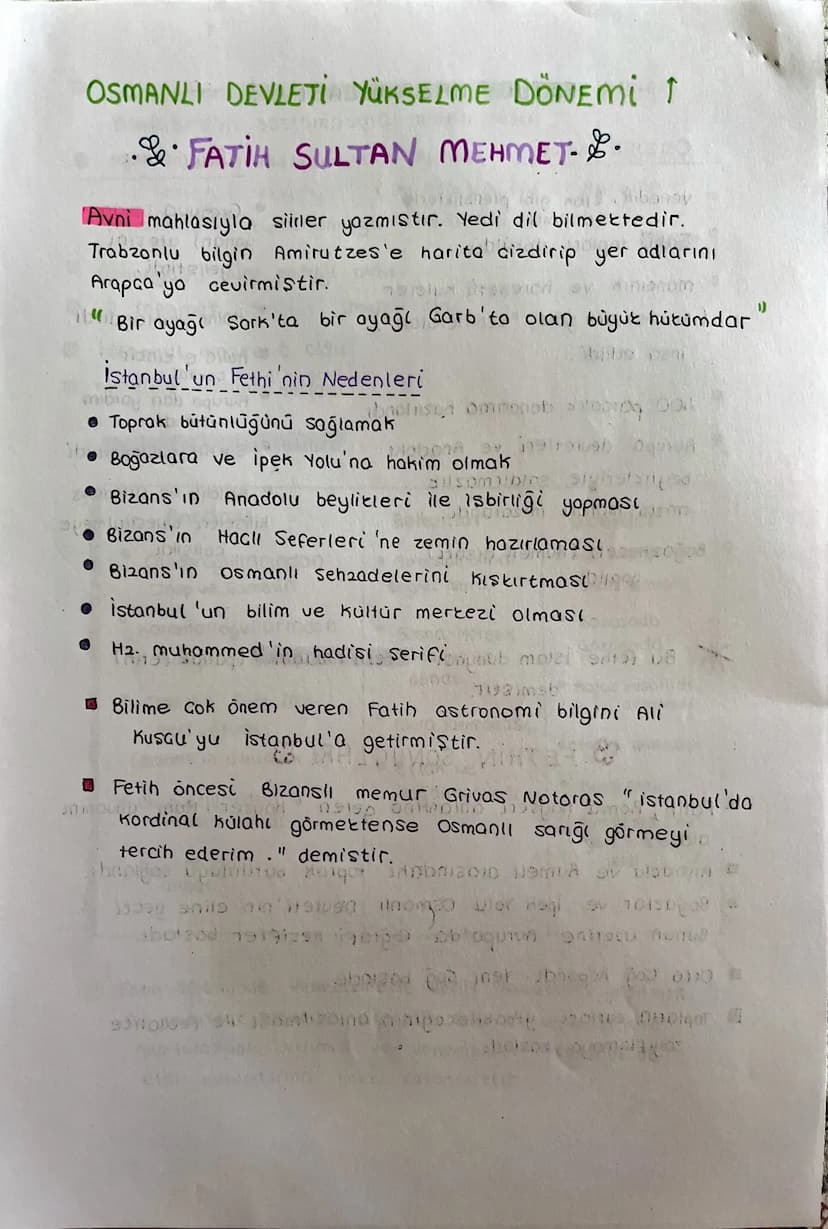 OSMANLI DEVLETİ YÜKSELME DÖNEMİ ↑
FATİH SULTAN MEHMET
Avni mahlasıyla siirler yazmıstır. Yedi dil bilmektedir.
Trabzonlu bilgin Amirutzes'e harita cizdirip yer adlarını
Arapca'ya cevirmiştir.
" Bir ayağı Sark'ta bir ayağı Garb'ta olan büyük hükümdar "
İstanbul'un Fethi'nin Nedenleri
• Toprak bütünlüğünü sağlamak
• Boğazlara ve İpek Yolu'na hakim olmak
• Bizans'ın Anadolu beylikleri ile isbirliği yapması
• Bizans'ın Haclı Seferleri'ne zemin hazırlaması
• Bizans'ın Osmanlı sehzadelerini kıskırtması
• İstanbul'un bilim ve kültür merkezi olması
• Hz. muhammed'in hadisi serifi
▪ Bilime cok önem veren Fatih astronomi bilgini Ali
Kuscu'yu İstanbul'a getirmiştir.
▪ Fetih öncesi Bizanslı memur Grivas Notoras "istanbul'da
Kordinal külahı görmektense Osmanlı sarığı görmeyi
tercih ederim." demistir.